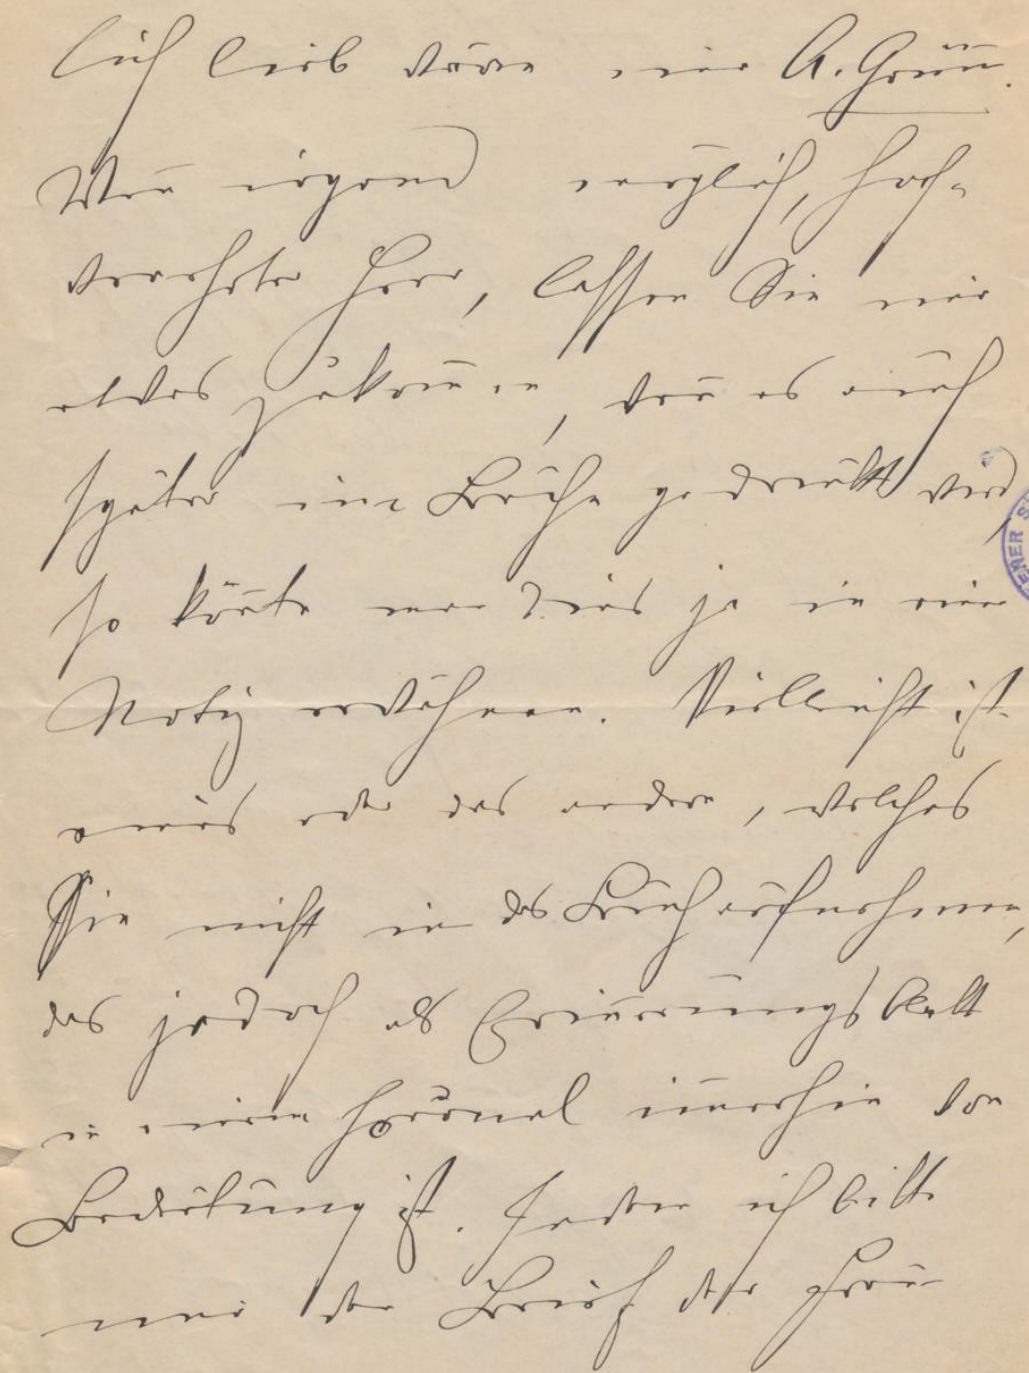 lich lieb wäre mir A. Grün.
Wen̄ irgend möglich, hoch-
verehrter Herr, lassen Sie mir
etwas zukom̄en, wen̄ es auch
später im Buche gedruckt wird
so kön̄te man dies ja in einer
Notiz erwähnen. Vielleicht ist
eines oder das andere, welches
Sie nicht in das Buch aufnehmen,
das jedoch als Erin̄erungsblatt
in meinem Journal im̄erhin von
Bedeutung ist. Indem ich bitte
mir den Brief der Frau
ENER S